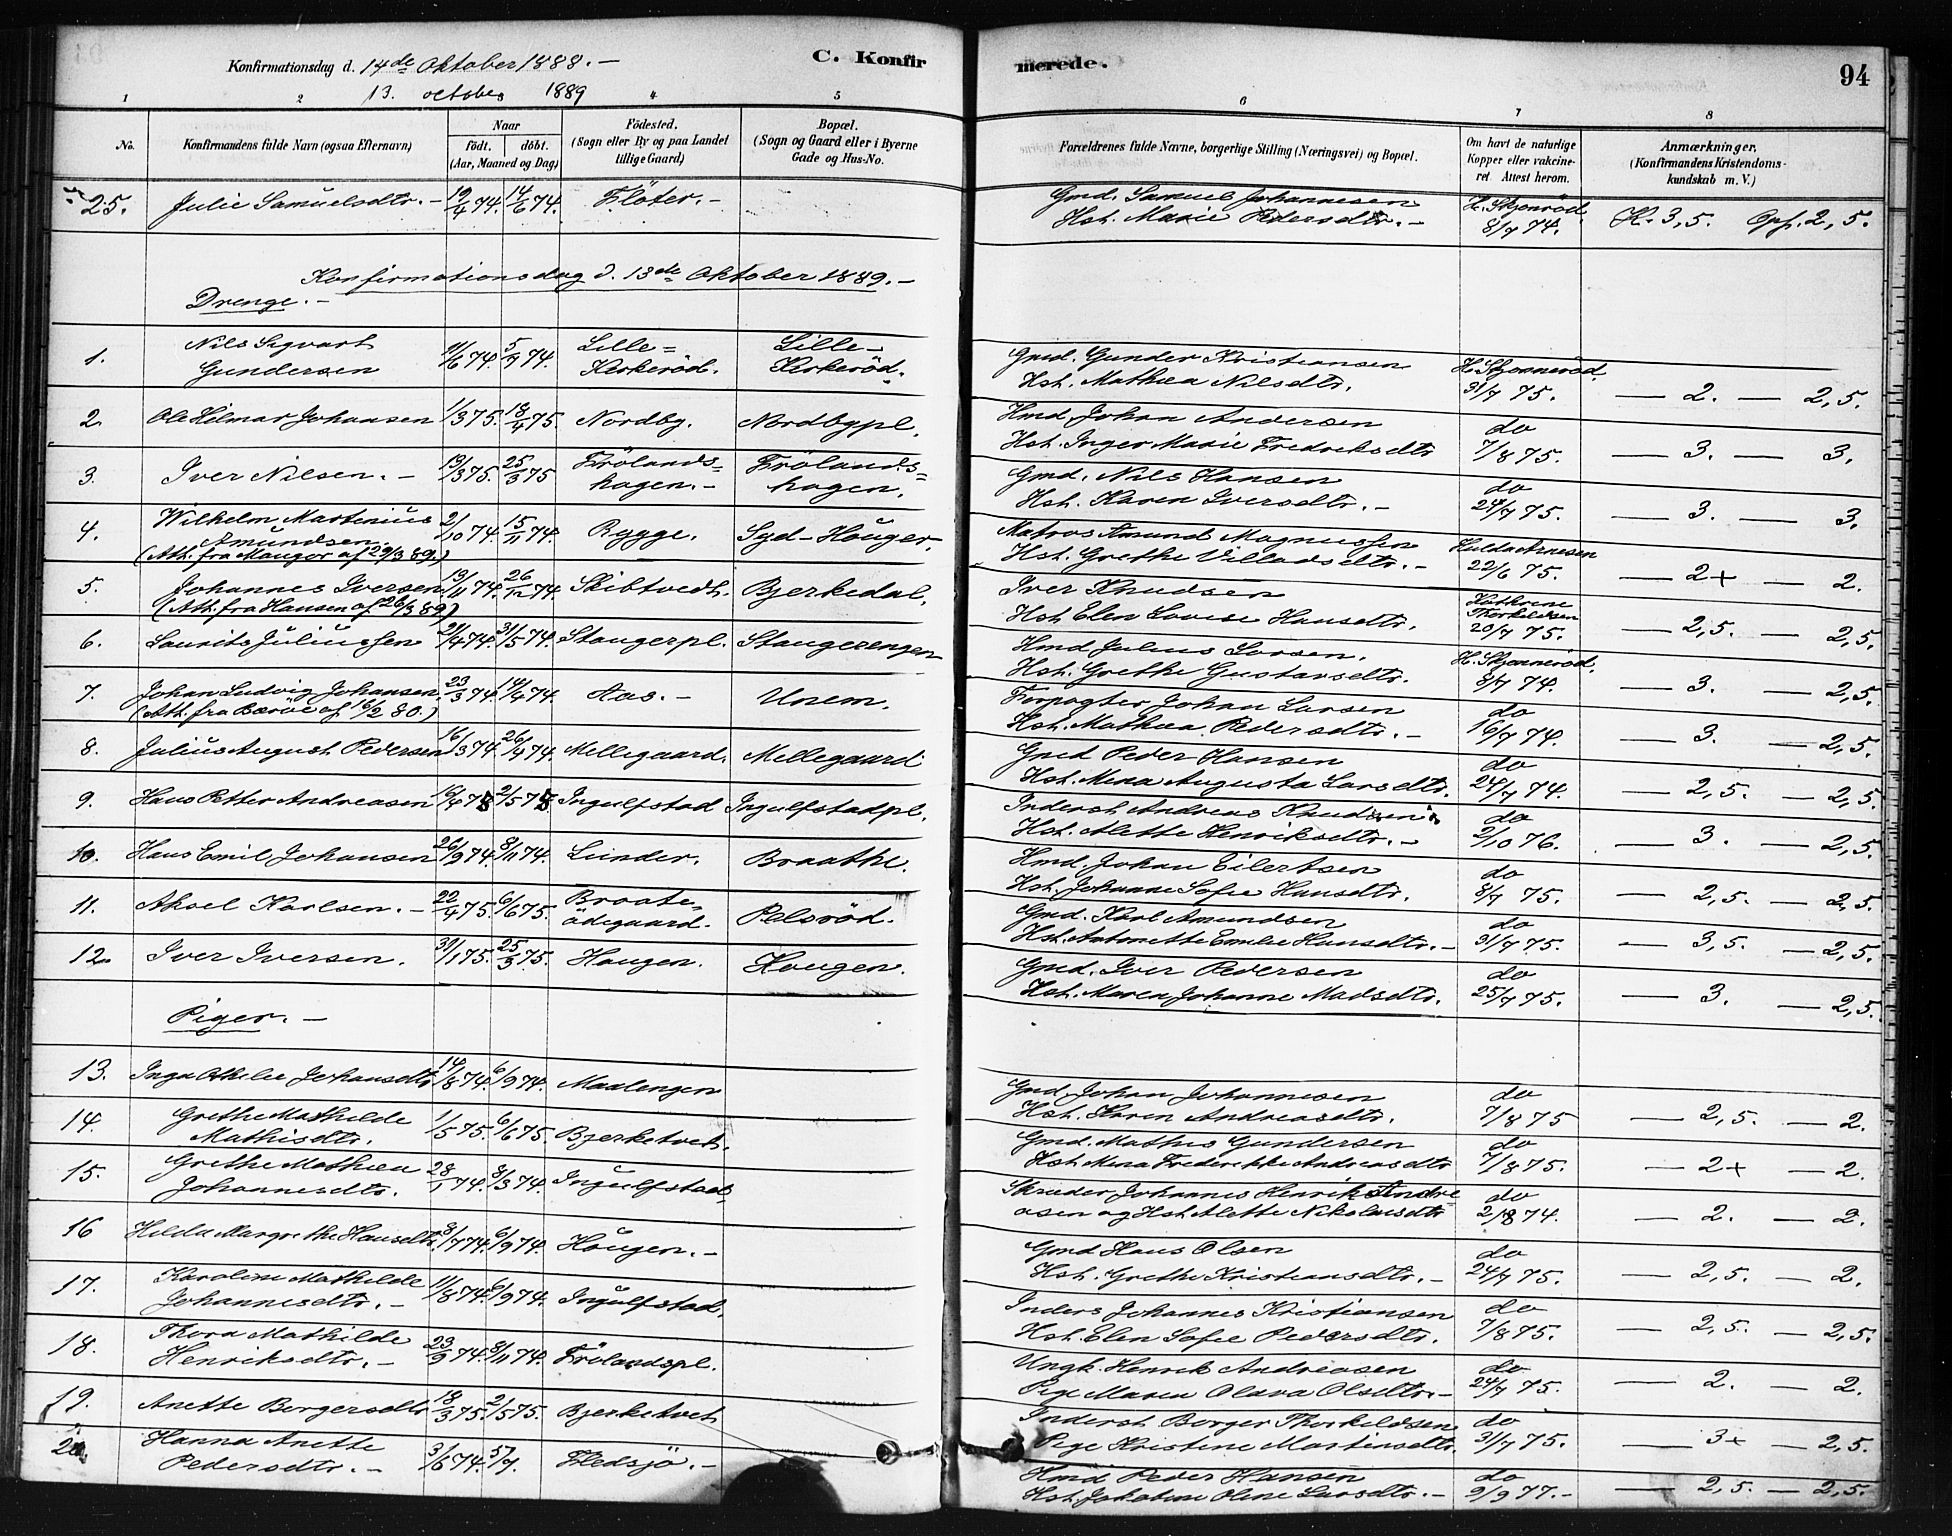 Konfirmationsdag d. 14de Oktober 1888. –
13. october 1889
C. Konfirmerede.
94
1 2 4 5 6 7 8
No.
Konfirmandens fulde Navn (ogsaa Efternavn)
Naar
født. døbt.
(Aar, Maaned og Dag)
Födested.
(Sogn eller By og paa Landet
tillige Gaard)
Bopæl.
(Sogn og Gaard eller i Byerne
Gade og Hus-No.
Forældrenes fulde Navne, borgerlige Stilling (Næringsvei) og Bopæl.
Om havt de naturlige
Kopper eller vakcine-
ret. Attest herom.
Anmærkninger.
(Konfirmandens Kristendoms-
kundskab m. V.)
25. Julie Samuelsdtr. – 19/4 74. 14/6 74. Flöter. – Gmd. Samuel Johannesen H. Skjønnerød
Hst. Marie Pedersdtr. – 8/7 74. K. 3,5. Opf. 2,5.
Konfirmationsdag d. 13de Oktober 1889. –
Drenge. –
1. Nils Sigvart 5/9 74. Lille= Lille- Gmd. Gunder Kristiansen H. Skjønnerød.
Gundersen Kirkeröd. Kirkeröd. Hst. Mathea Nilsdtr. 31/7 75. — 2. — 2,5.
2. Ole Hilmar Johansen 1/3 75. 18/4 75. Nordby. Nordbypl. Hmd. Johan Andersen do
Hst. Inger Marie Fredriksdtr 7/8 75. — 3. — 3.
3. Iver Nilsen. – 13/3 75. 25/3 75 Frölands= Frölands= Gmd. Nils Hansen do
hagen. – hagen. Hst. Karen Iversdtr. – 24/7 75. — 3. — 3.
4. Wilhelm Martenius 2/10 74. 15/11 74. Rygge. Syd-Hauger. Matros Amund Magnussen Hulda Arnesen
Amundsen. Hst. Grethe Villadsdtr. – 22/6 75. — 2+ — 2.
(Att. fra Maugor af 29/3 89.)
5. Johannes Iversen 13/11 74. 26/12 74. Skibtvedt. Bjerkedal. Iver Knudsen Kathrine
(Att. fra Hansen af 26/3 89) Hst. Elen Lovise Hansdtr. Thorkildsen
20/7 75. — 2,5. — 2,5.
6. Laurits Juliussen 21/4 74. 31/5 74. Staugerpl. Staugerengen Hmd Julius Larsen. H. Skjønnerød.
Hst. Grethe Gustavsdtr. 8/7 74. — 3. — 2,5.
7. Johan Ludvig Johansen 23/3 74. Aas. – Unem. Forpagter Johan Larsen do
(Att. fra Bærøe af 16/2 80.) Hst. Mathea Pedersdtr. – 16/7 74. — 3. — 2,5.
8. Julius August Pedersen 16/3 74. 26/4 74. Mellegaard. Mellegaard Gmd Peder Hansen do
Hst. Mena Augusta Larsdtr. 24/7 74. — 2,5. — 2,5.
9. Hans Petter Andreasen Ingulfstad Ingulfstadpl. Inderst Andreas Knudsen do
Hst. Alette Henriksdtr. – 2/10 76. — 3. — 2,5.
10. Hans Emil Johansen 26/9 74. 8/11 74. Lunder. Braathe. Hmd. Johan Eilertsen do
Hst. Johanne Sofie Hansdtr. 8/7 75. — 2,5. — 2,5.
11. Aksel Karlsen. – 22/4 75. 6/6 75. Braate= Pelsröd. Gmd. Karl Amundsen do
ödegaard. Hst. Antonette Emilie Hansdtr. – 31/7 75. — 3,5. — 2,5.
12. Iver Iversen. 31/1 75. 25/3 75. Haugen. Haugen. Gmd. Iver Pedersen do
Hst. Maren Johanne Madsdtr. 25/7 75. — 3. — 2,5.
Piger. –
13. Inga Othilie Johansdtr 14/8 74. 6/9 74. Maalengen Gmd. Johan Johannesen do
Hst. Karen Andreasdtr. 7/8 75 — 2,5. — 2.
14. Grethe Mathilde 1/5 75. 6/6 75. Bjerketvet. Gmd. Mathis Gundersen do
Mathisdtr. Hst. Mena Frederikke Andreasdtr 7/8 75. — 2+ — 2.
15. Grethe Mathea 28/1 74. 8/3 74. Ingulfstad. Skræder Johannes Henrik Andre= do
Johannesdtr. asen og Hst Alette Nikolaisdtr 2/8 74. — 2. — 2.
16 Hilda Margrethe Hansdtr. 8/7 74. 6/9 74. Haugen. – Gmd Hans Olsen do
Hst. Grethe Kristiansdtr. – 24/7 75. — 2,5. — 2.
17. Karoline Mathilde 11/8 74. 6/9 74. Ingulfstad. Inders Johannes Kristiansen do
Johannesdtr. – Hst. Elen Sofie Pedersdtr. 7/8 75. — 2,5. — 2,5.
18. Thora Mathilde 23/9 74. 8/11 74. Frölandspl. Ungk. Henrik Andreasen do
Henriksdtr. – Pige Maren Olava Olsdtr. – 24/7 75. — 2. — 2.
19. Anette Borgersdtr 18/3 75. 2/5 75. Bjerketvet Inderst Borger Thorkildsen do
Pige Kristine Martinsdtr. 31/7 75. — 3+ — 2,5.
20. Hanna Anette 3/6 74. 5/7. Fledsjö. – Hmd Peder Hansen do
Pedersdtr. – Hst. Jakobine Oline Larsdtr. – 9/9 77. – — 2,5. — 2,5.